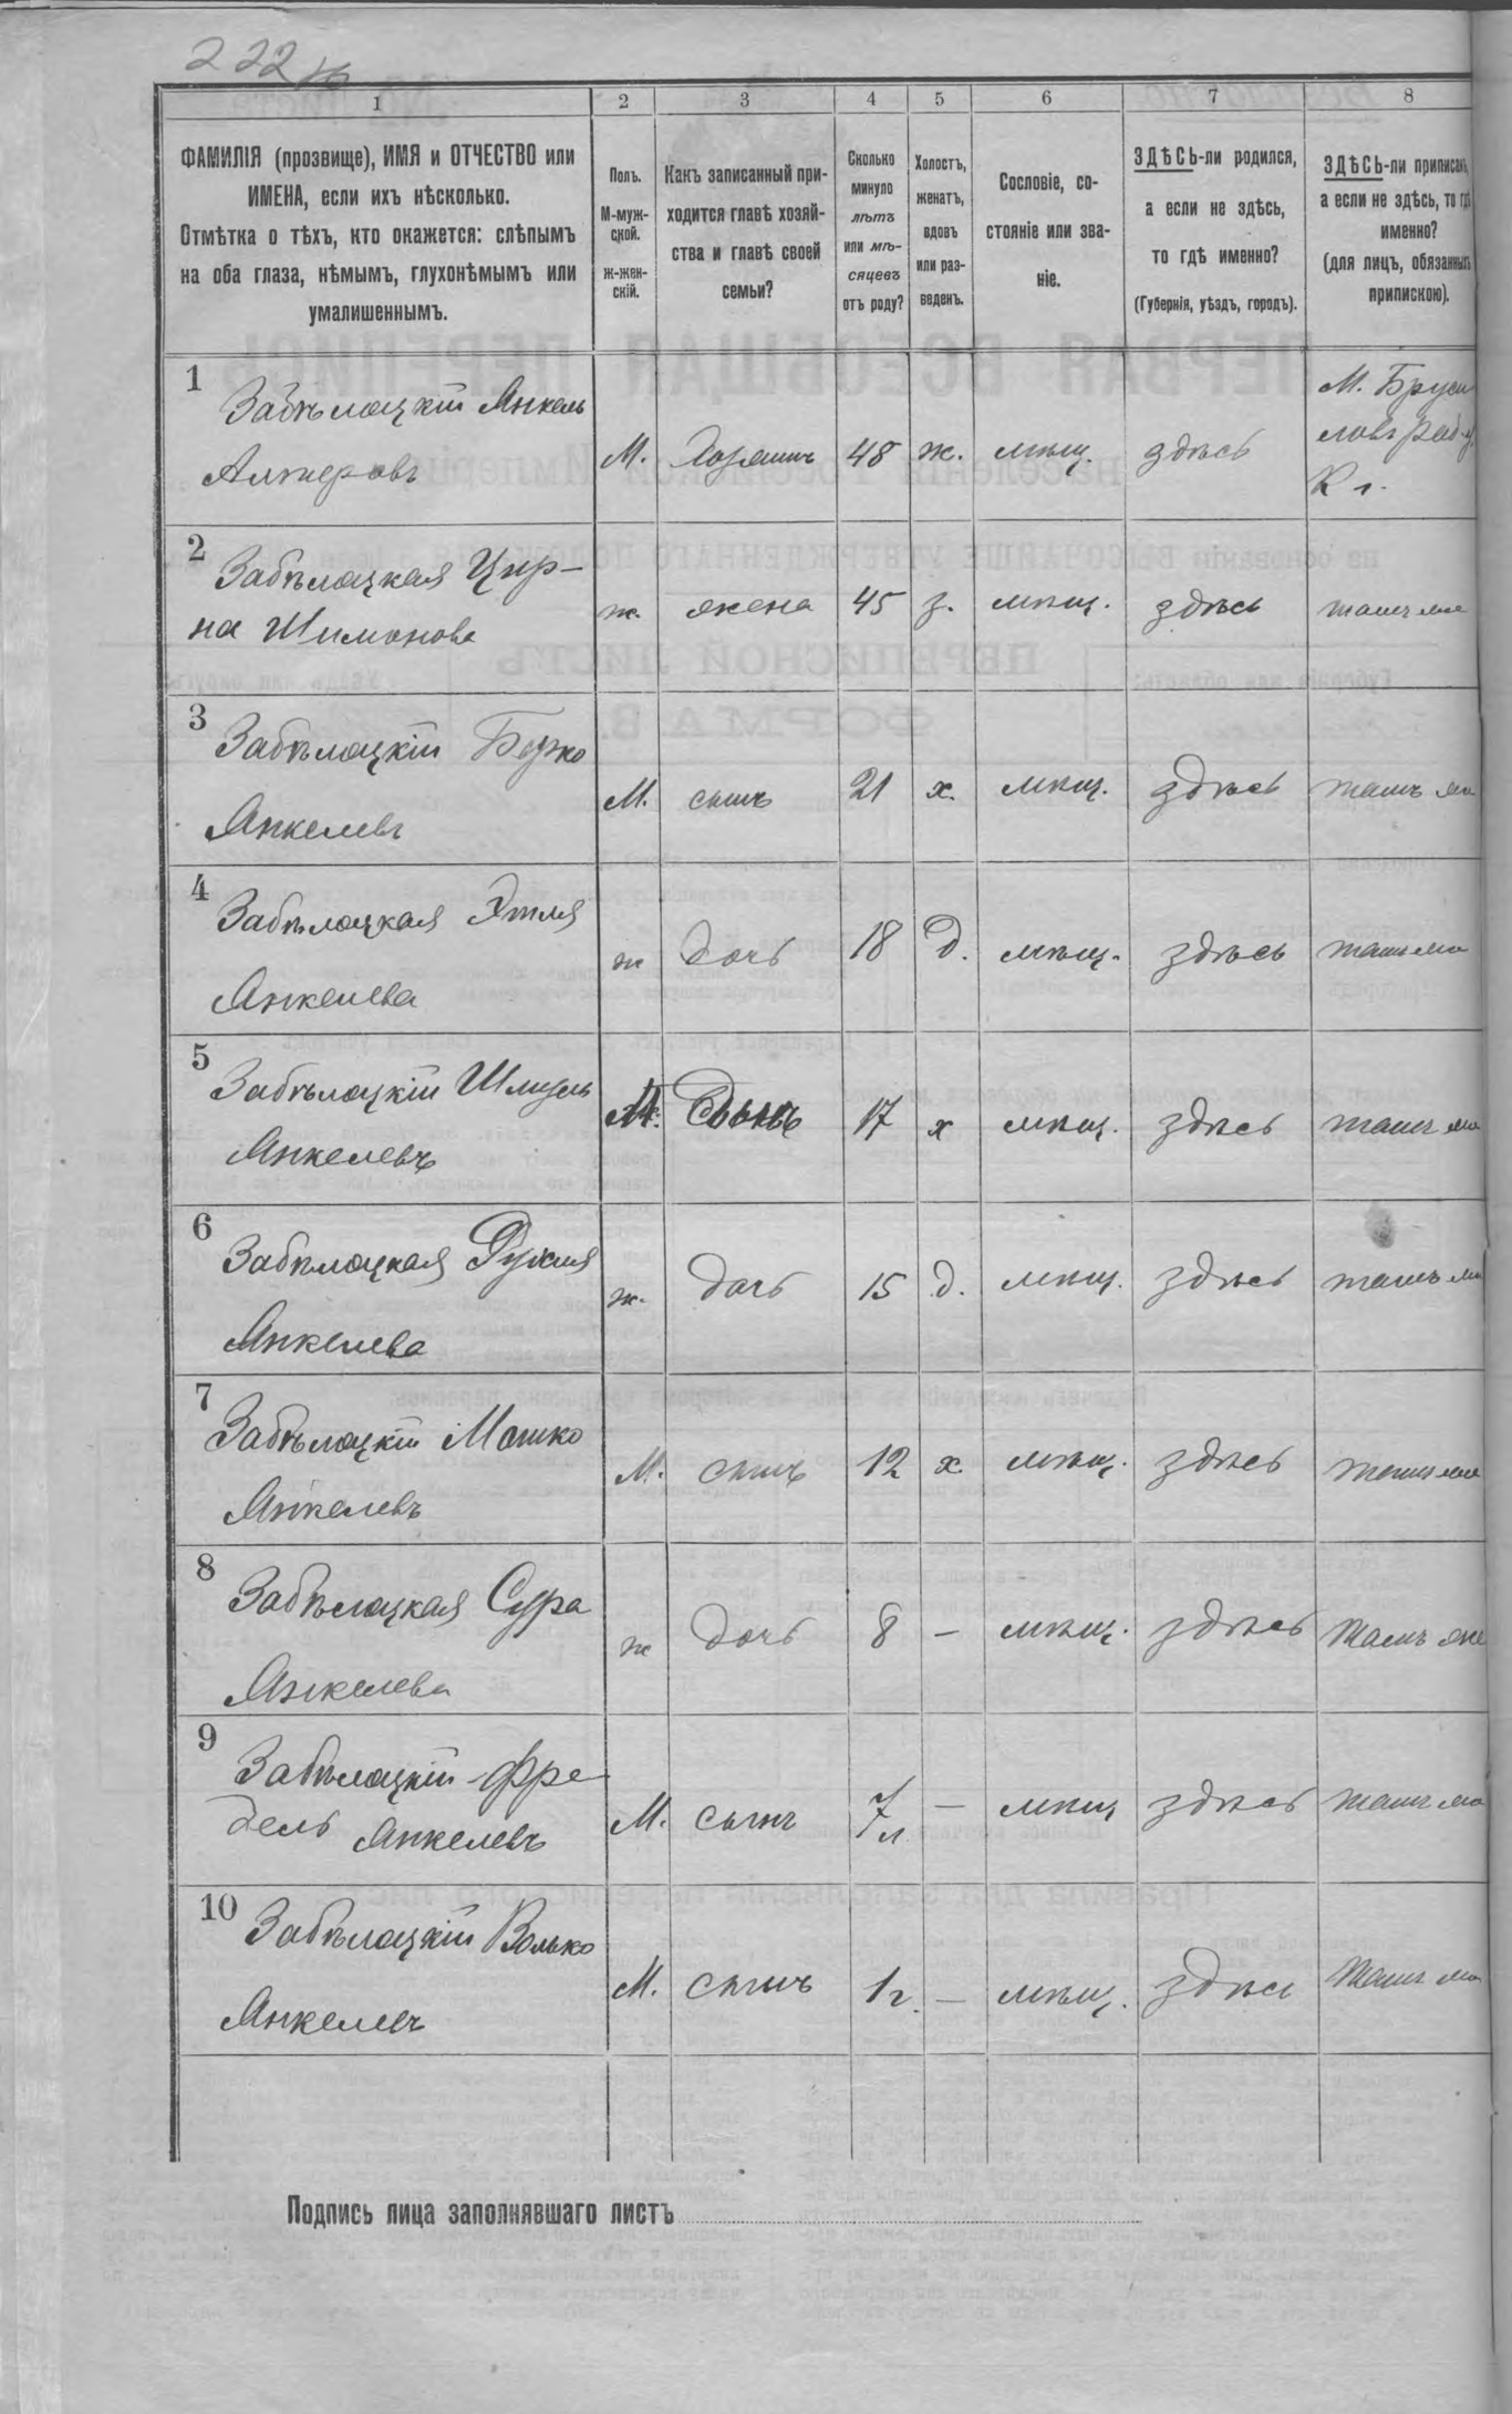 222
1 2 3 4 5 6 7 8
ФАМИЛІЯ (прозвище), ИМЯ и ОТЧЕСТВО или
ИМЕНА, если ихъ нѣсколько.
Отмѣтка о тѣхъ, кто окажется: слѣпымъ
на оба глаза, нѣмымъ, глухонѣмымъ или
умалишеннымъ.
Полъ.
М-муж-
ской.
ж-жен-
скій.
Какъ записанный при-
ходится главѣ хозяй-
ства и главѣ своей
семьи?
Сколько
минуло
лѣтъ
или мѣ-
сяцевъ
отъ роду?
Холостъ,
женатъ,
вдовъ
или раз-
веденъ.
Сословіе, со-
стояніе или зва-
ніе.
ЗДѢСЬ-ли родился,
а если не здѣсь,
то гдѣ именно?
(Губернія, уѣздъ, городъ).
ЗДѢСЬ-ли приписанъ,
а если не здѣсь, то гдѣ
именно?
(для лицъ, обязанныхъ
припискою).
1
Забѣлоцкій Янкель
Алтеровъ
М. Хозяинъ 48 ж. мѣщ. здѣсь
М. Бруси
ловъ Рад. у.
К г.
2
Забѣлоцкая Цир-
на Шимонова
ж. жена 45 з. мѣщ. здѣсь тамъ же
3
Забѣлоцкій Берко
Янкелевъ
М. сынъ 21 х. мѣщ. здѣсь тамъ же
4
Забѣлоцкая Этля
Янкелева
ж дочь 18 д. мѣщ. здѣсь тамъ же
5
Забѣлоцкій
Янкелевъ
М. Сынъ 17 х мѣщ. здѣсь тамъ же
6
Забѣлоцкая
Янкелева
ж. дочь 15 д. мѣщ. здѣсь тамъ же
7
Забѣлоцкій Мошко
Янкелевъ
М. сынъ 12 х. мѣщ. здѣсь тамъ же
8
Забѣлоцкая Сура
Янкелева
ж дочь 8 — мѣщ. здѣсь тамъ же
9
Забѣлоцкій Фре-
дель Янкелевъ
М. сынъ 7 л — мѣщ здѣсь тамъ же
10
Забѣлоцкій Волько
Янкелевъ
М. сынъ 1 г. — мѣщ. здѣсь тамъ же
Подпись лица заполнявшаго листъ